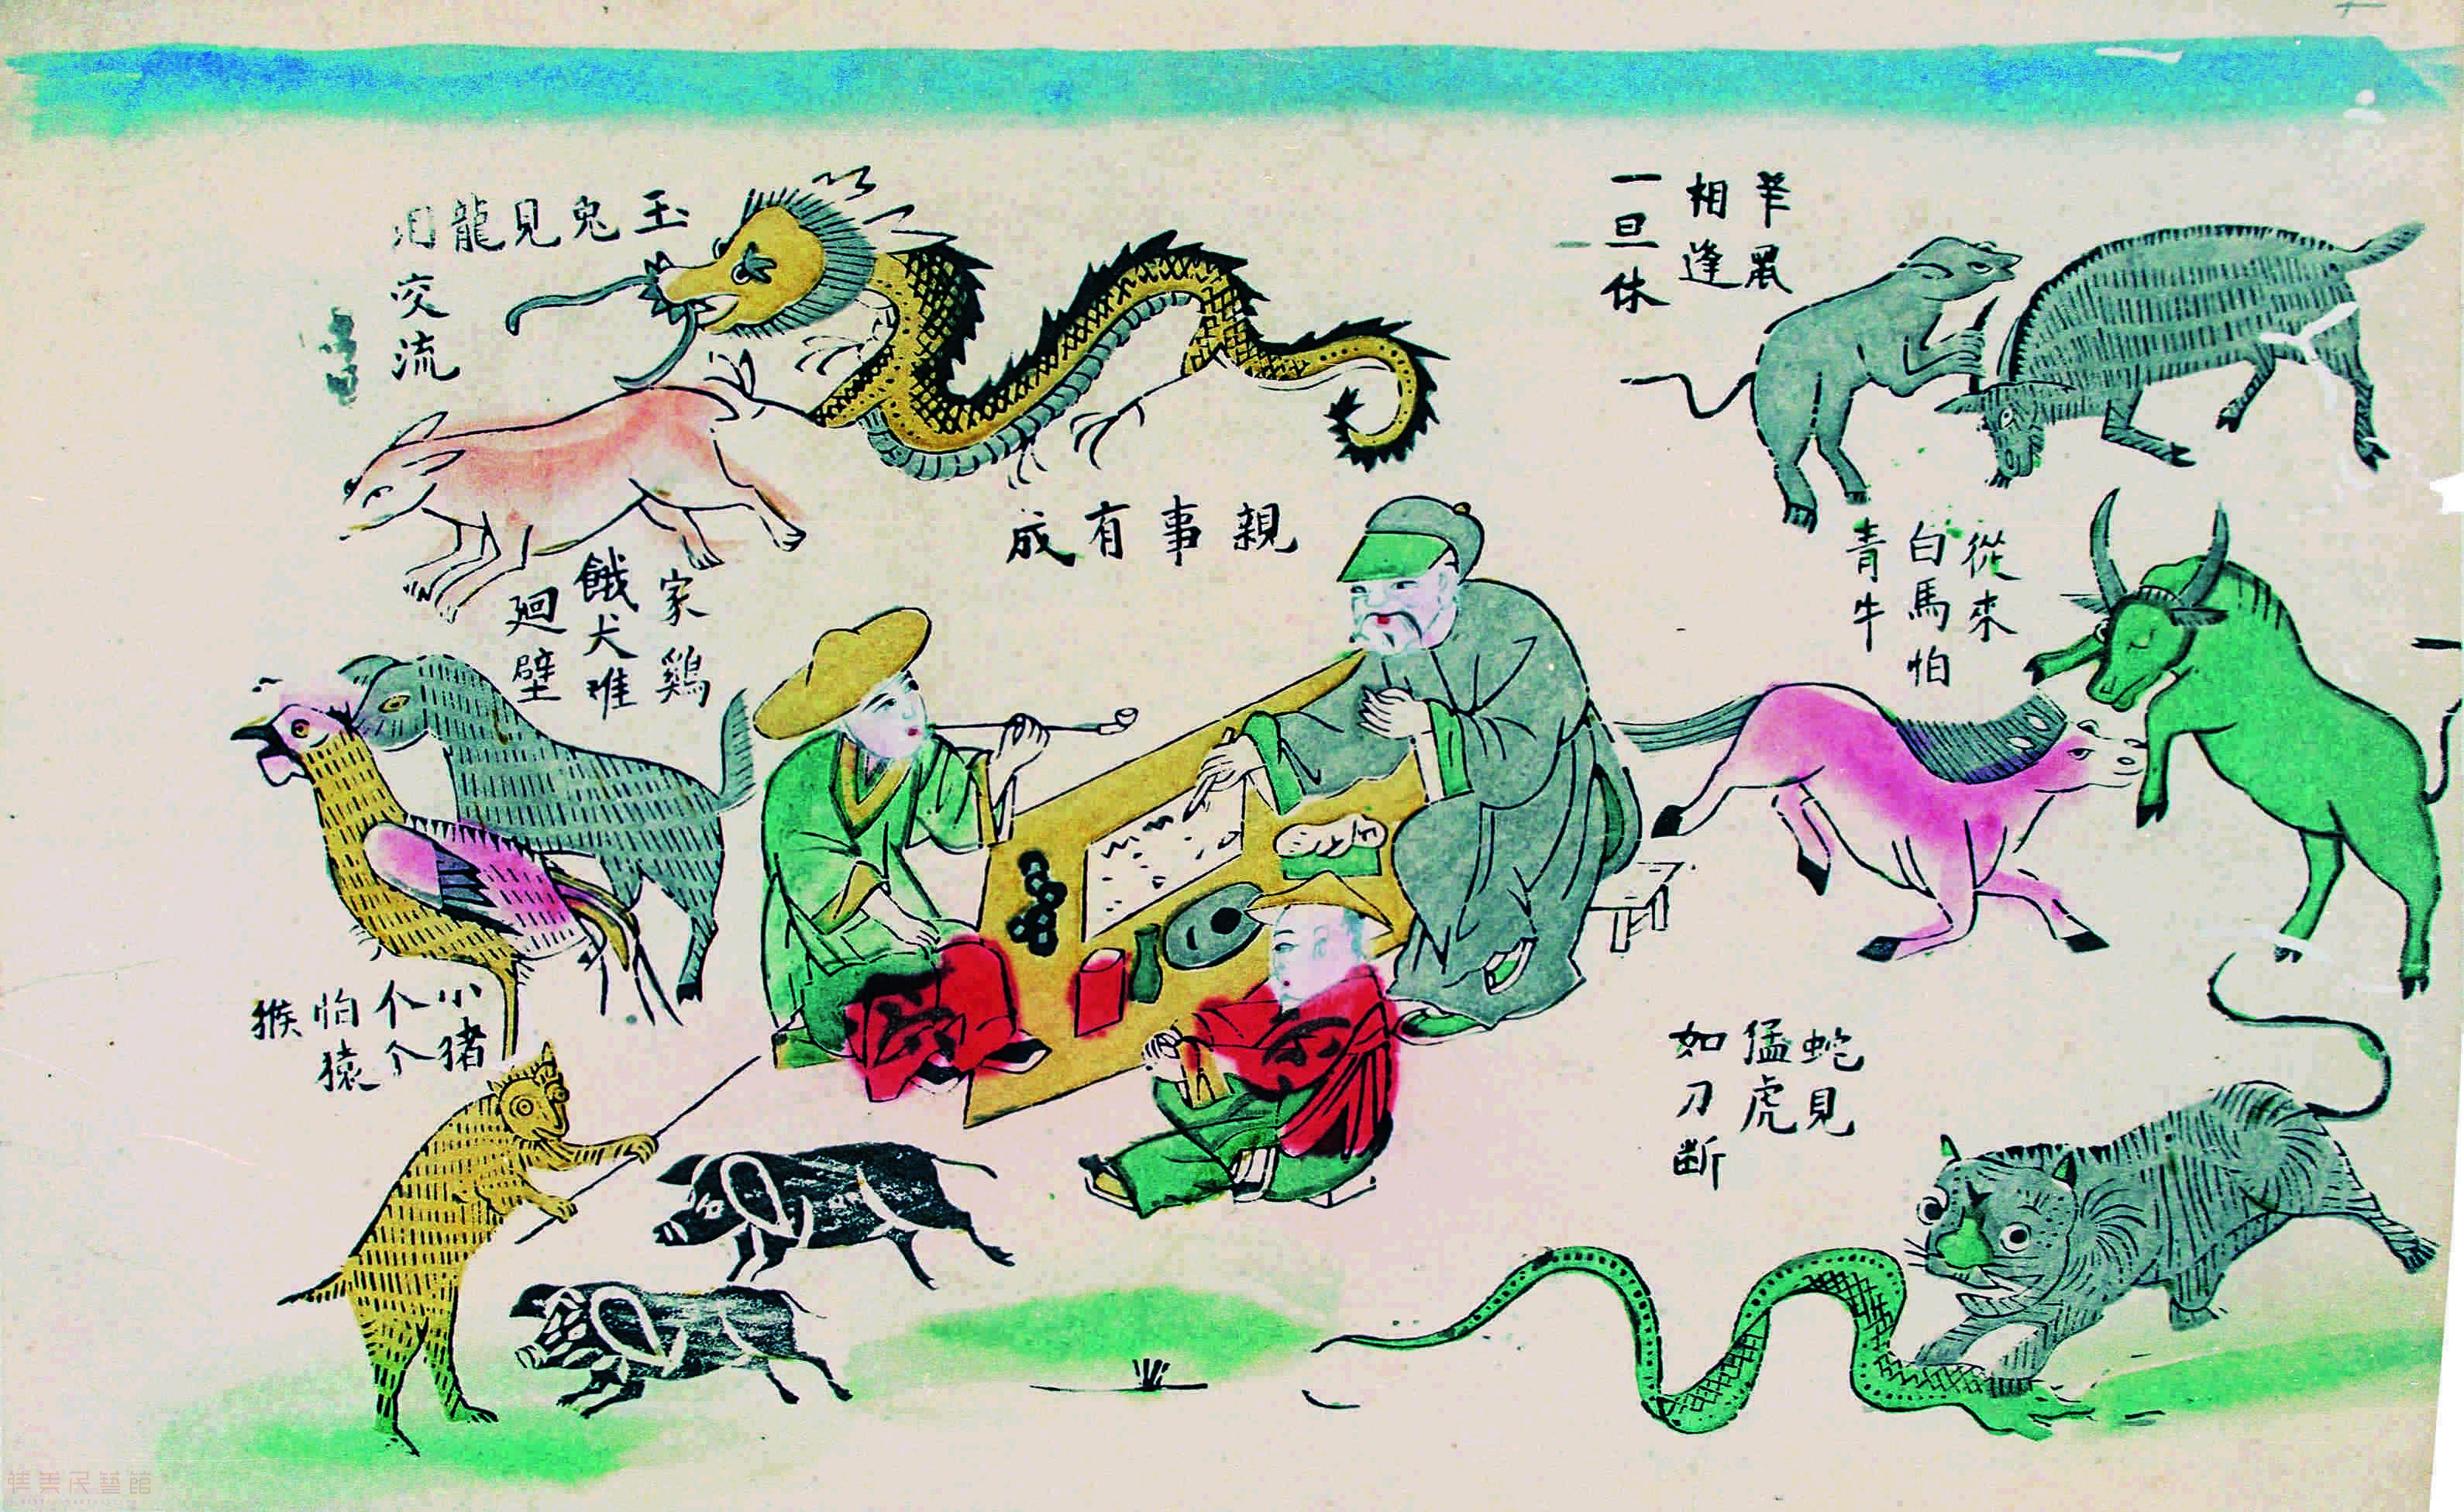 羊鼠
相逢
一旦休
玉兔見龍泪
咬流
親事有成
從來
白馬怕
青牛
家鷄
餓犬
廻壁
小猪
个个
怕猿
猴
蛇見
猛虎
如刀断
民藝館